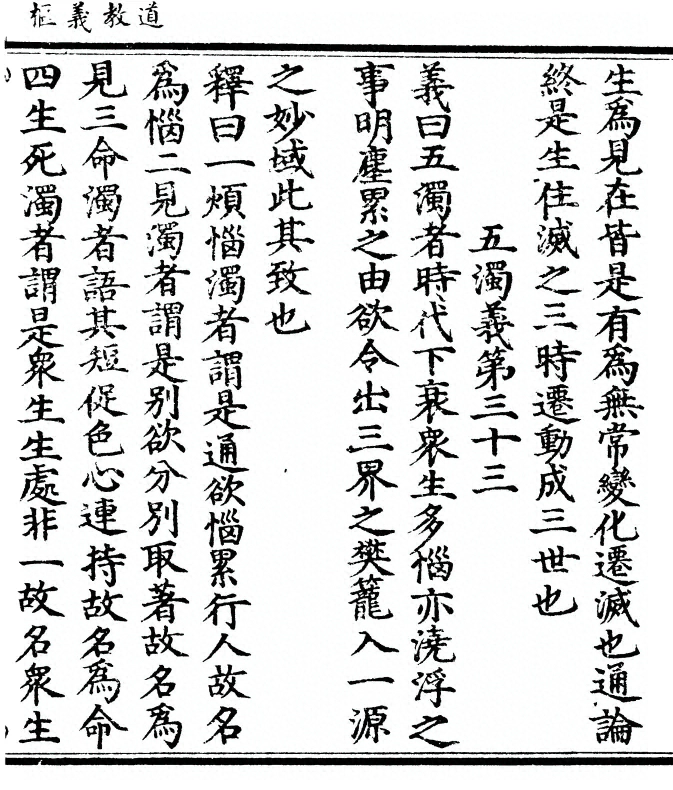 道教義樞
生爲見在皆是有爲無常變化遷滅也通論
終是生住滅之三時遷動成三世也
五濁義第三十三
義曰五濁者時代下衰衆生多惱亦澆浮之
事明塵累之由欲令出三界之樊籠入一源
之妙域此其致也
釋曰一煩惱濁者謂是通欲惱累行人故名
爲惱二見濁者謂是別欲分別取著故名爲
見三命濁者語其短促色心連持故名爲命
四生死濁者謂是衆生生處非一故名衆生